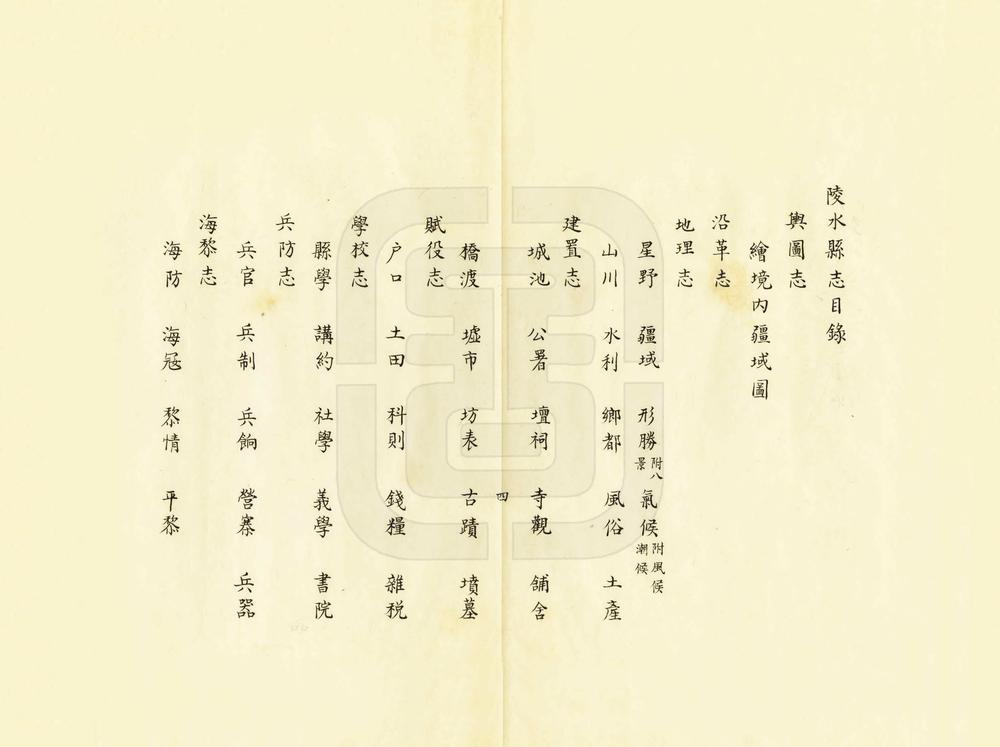 陵水縣志目錄
輿圖志
繪境内疆域圖
沿革志
地理志
星野 疆域 形勝 附八景 氣候 附風候潮候
山川 水利 鄉都 風俗 土產
建置志
城池 公署 壇祠 寺觀 舖舍
四
橋渡 墟市 坊表 古蹟 墳墓
賦役志
户口 土田 科則 錢糧 雜税
學校志
縣學 講約 社學 義學 書院
兵防志
兵官 兵制 兵餉 營寨 兵器
海黎志
海防 海寇 黎情 平黎